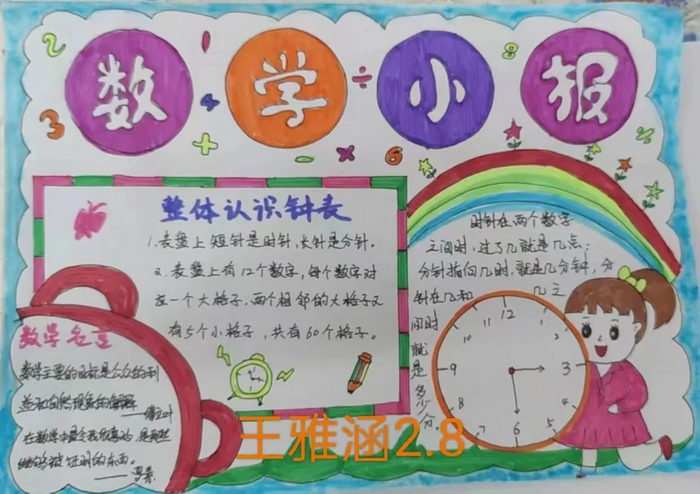 数学小报
整体认识钟表
1.表盘上短针是时针,长针是分针。
2.表盘上有12个数字,每个数字对
应一个大格子,两个相邻的大格子又
有5个小格子,共有60个格子。
时针在两个数字
之间时,过了几就是几点;
分针指向几时,就是几分钟,分
针在几和 几之
间时
就
是
多
少
分
12
3
6
9
数学名言
数学主要的目标是公众的利
益和自然现象的解释
——傅立叶
在数学中最令我欣喜的,是那些
能够被证明的东西。
——罗素
王雅涵2.8